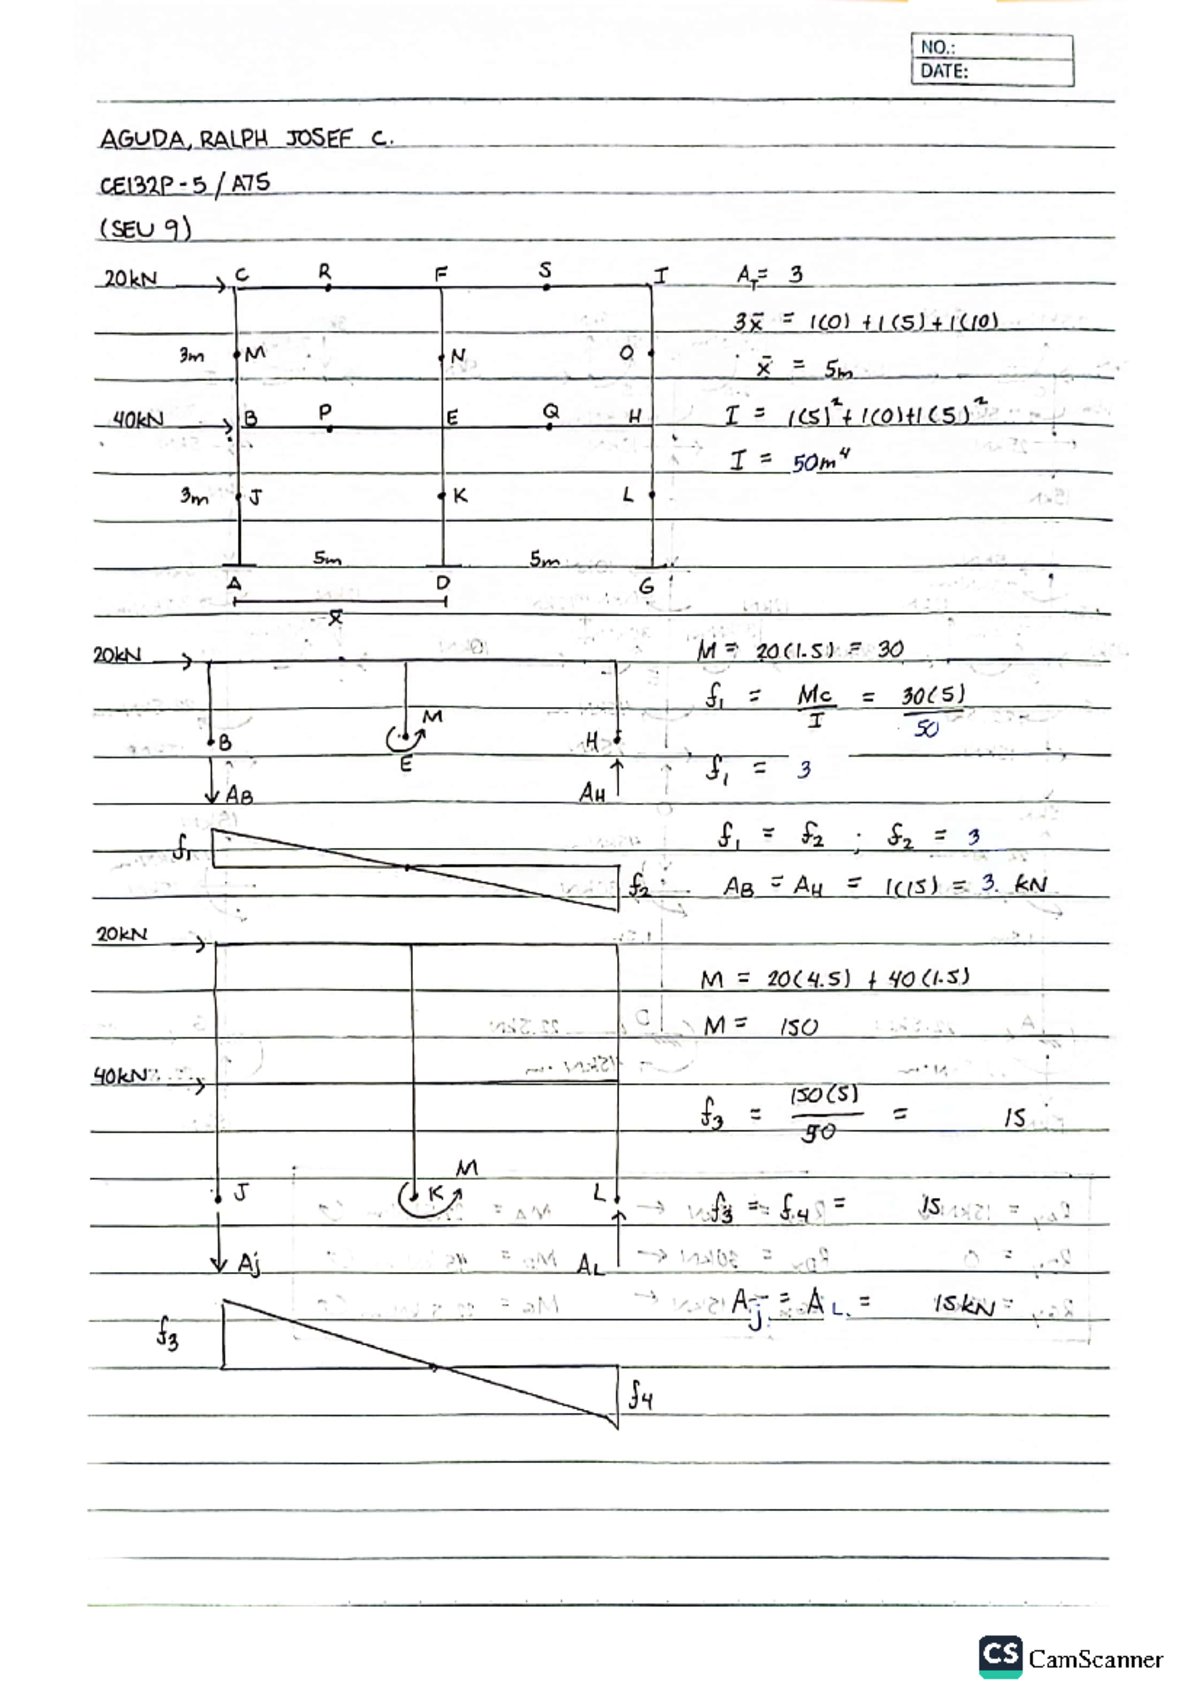 NO.:
DATE:
AGUDA, RALPH JOSEF C.
CE132P-5 / A75
(SEU 9)
20kN C R F S I
3m M N O
40kN B P E Q H
3m J K L
5m 5m
A D G
x̄
A_T = 3
3x̄ = 1(0) + 1(5) + 1(10)
x̄ = 5m
I = 1(5)² + 1(0) + 1(5)²
I = 50m⁴
20kN
M
B E H
AB AH
f₁
f₂
M = 20(1.5) = 30
f₁ = Mc/I = 30(5)/50
f₁ = 3
f₁ = f₂ ; f₂ = 3
AB = AH = 1(15) = 3. kN
20kN
40kN
M
J K L
Aj AL
f₃
f₄
M = 20(4.5) + 40(1.5)
M = 150
f₃ = 150(5)/50 = 15
f₃ = f₄ = 15
Aj = AL. = 15kN
CS CamScanner